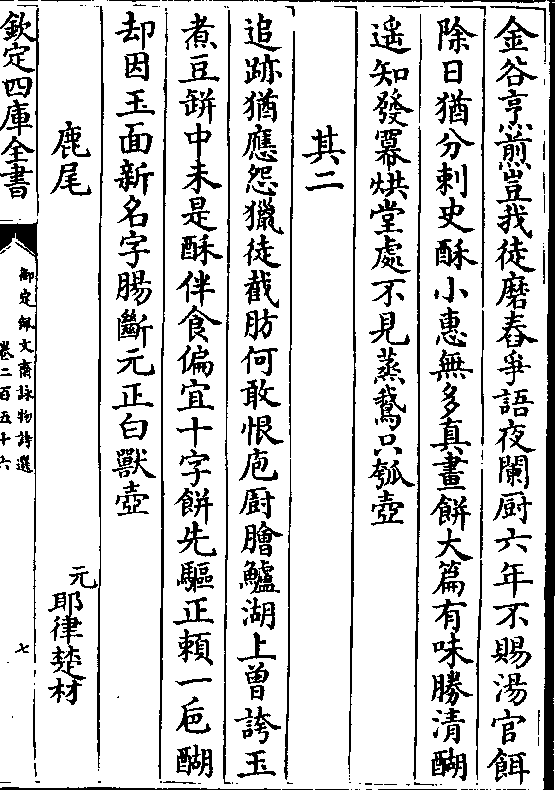 金谷亨煎豈我徒磨舂爭語夜闌厨六年不賜湯官餌
除日猶分剌史酥小惠無多真畫餅大篇有味勝清醐
遥知發羃烘堂處不見蒸鵝只瓠壺
其二
追跡猶應怨獵徒截肪何敢恨庖厨膾鱸湖上曾誇玉
煮豆缾中未是酥伴食偏宜十字餅先驅正賴一巵醐
却因玉面新名字腸斷元正白獸壺
鹿尾
元
耶律楚材
欽定四庫全書
御定佩文齋詠物詩選
卷二百五十六
七